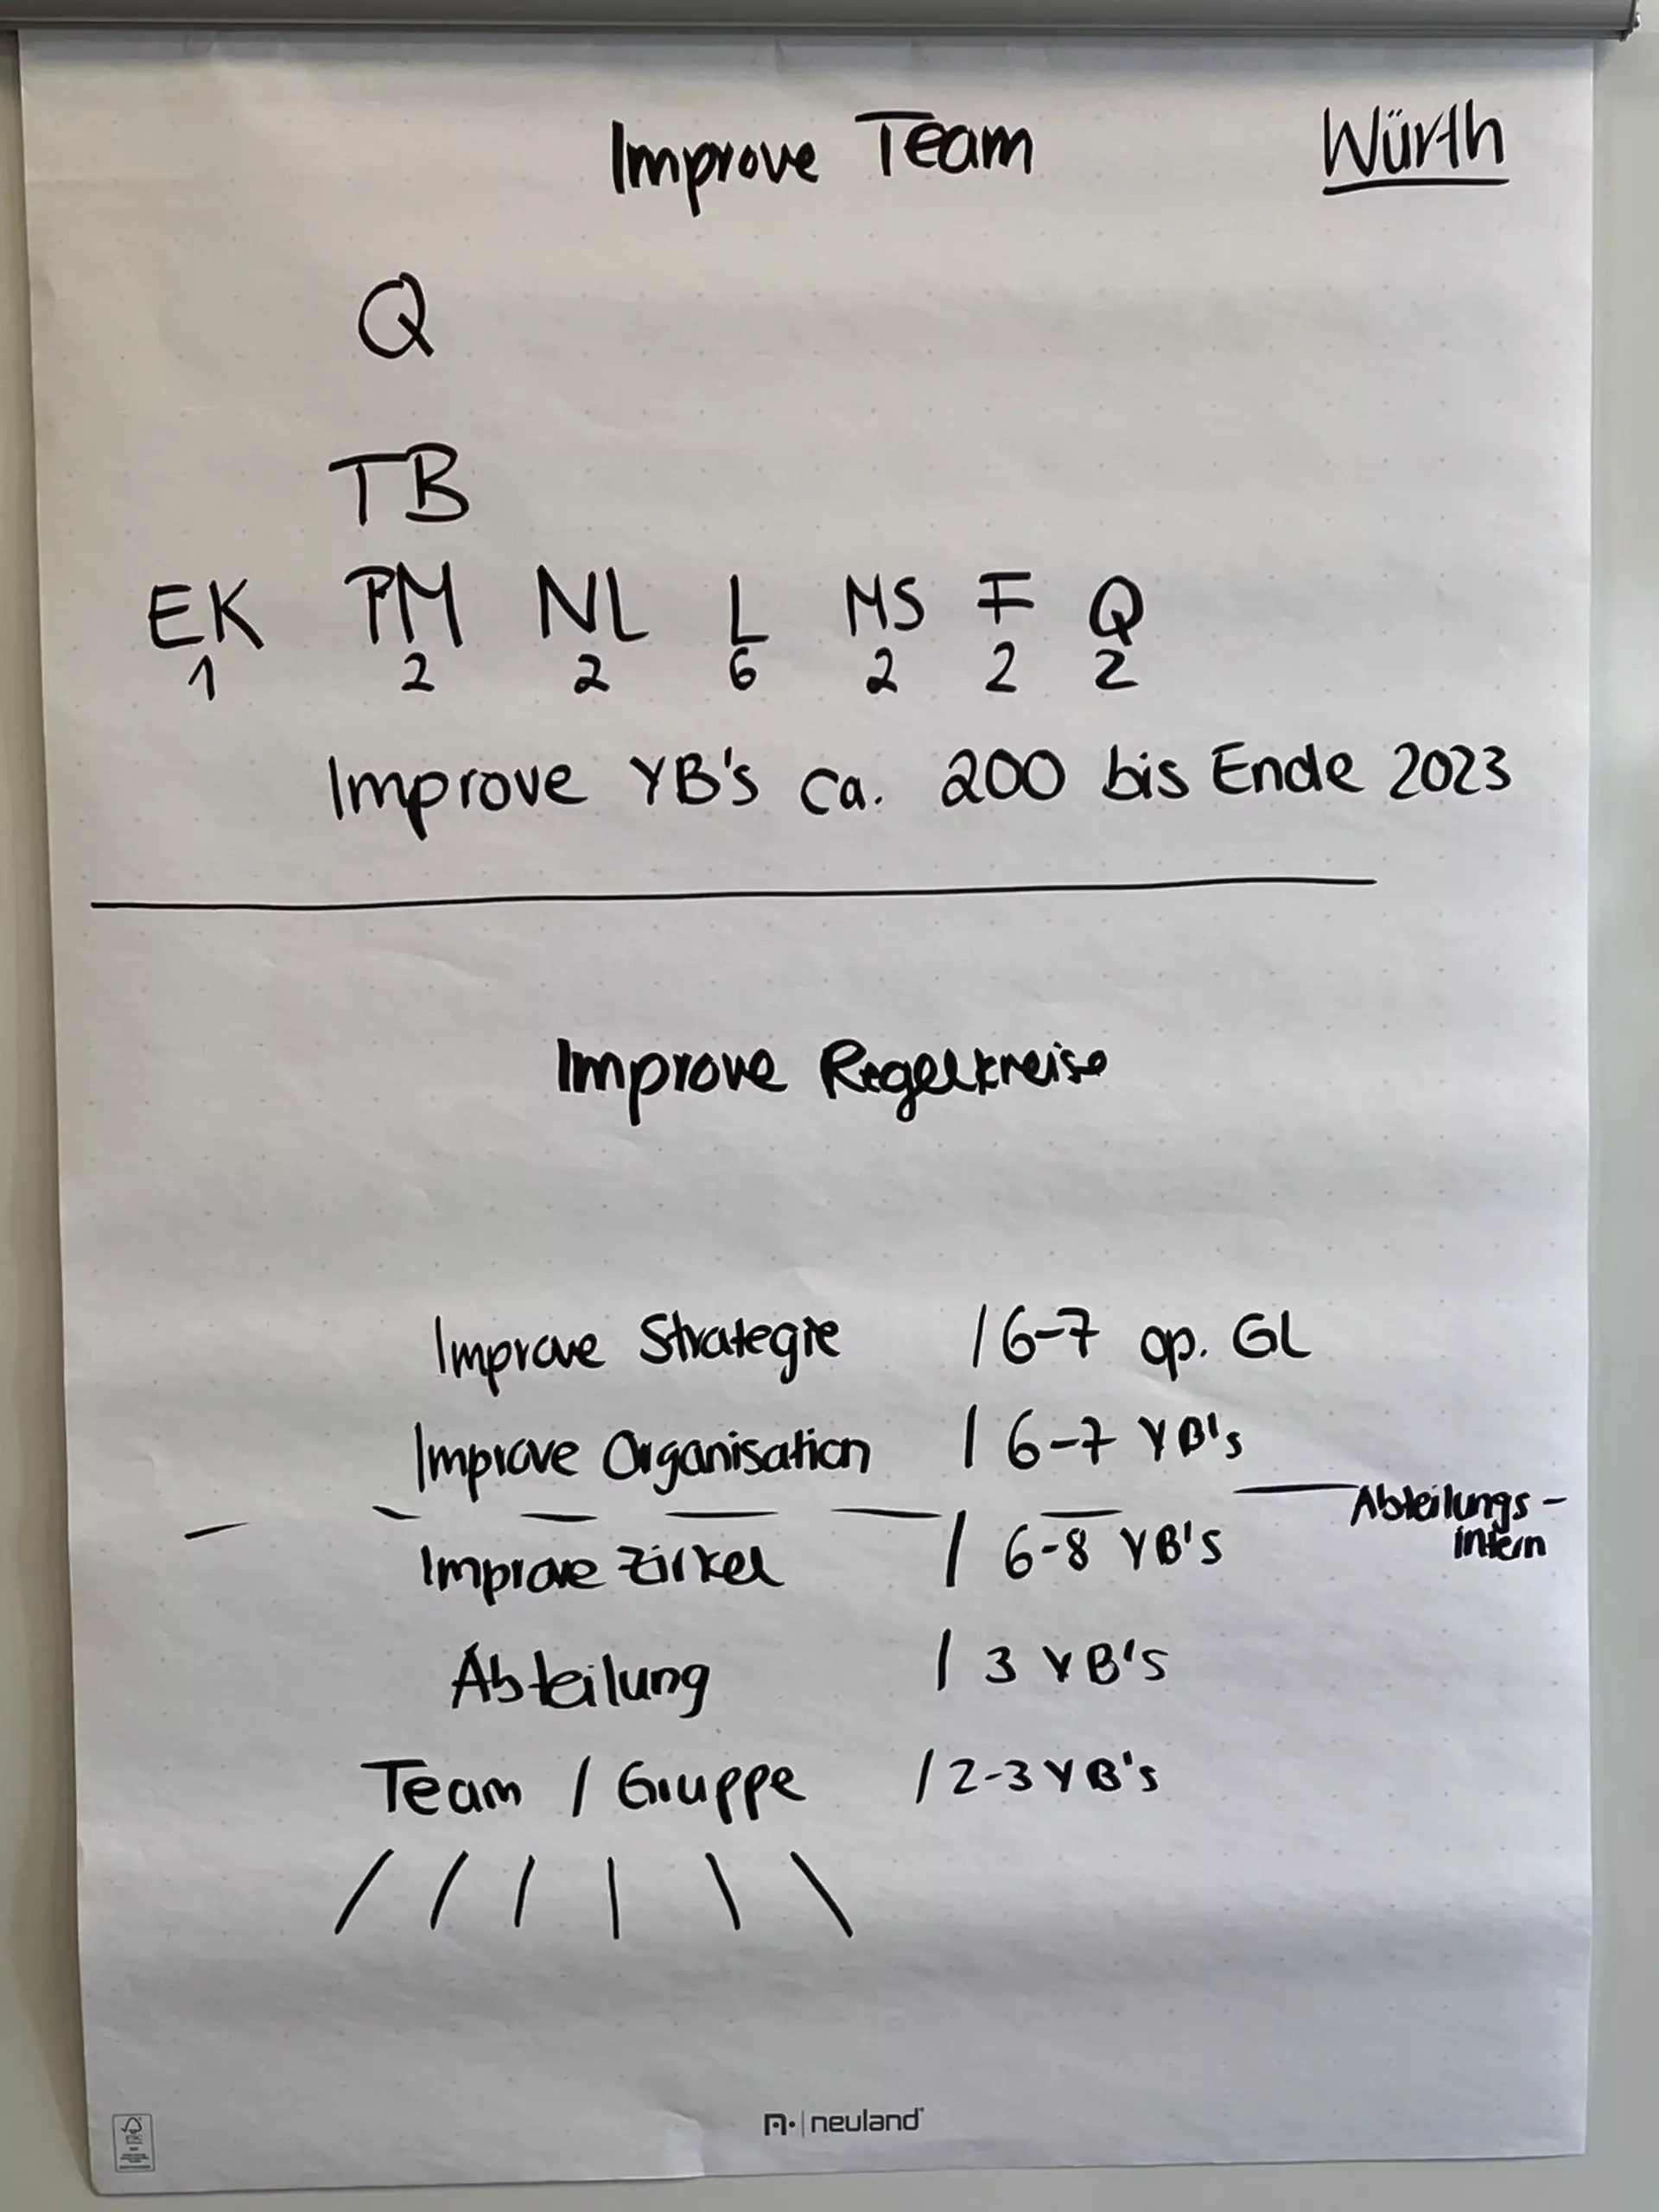 Improve Team Würth
Q
TB
EK PM NL L MS F Q
1 2 2 6 2 2 2
Improve YB's ca. 200 bis Ende 2023
Improve Regelkreise
Improve Strategie / 6-7 op. GL
Improve Organisation / 6-7 YB's
Abteilungs-
intern
Improve Zirkel / 6-8 YB's
Abteilung / 3 YB's
Team / Gruppe / 2-3 YB's
neuland